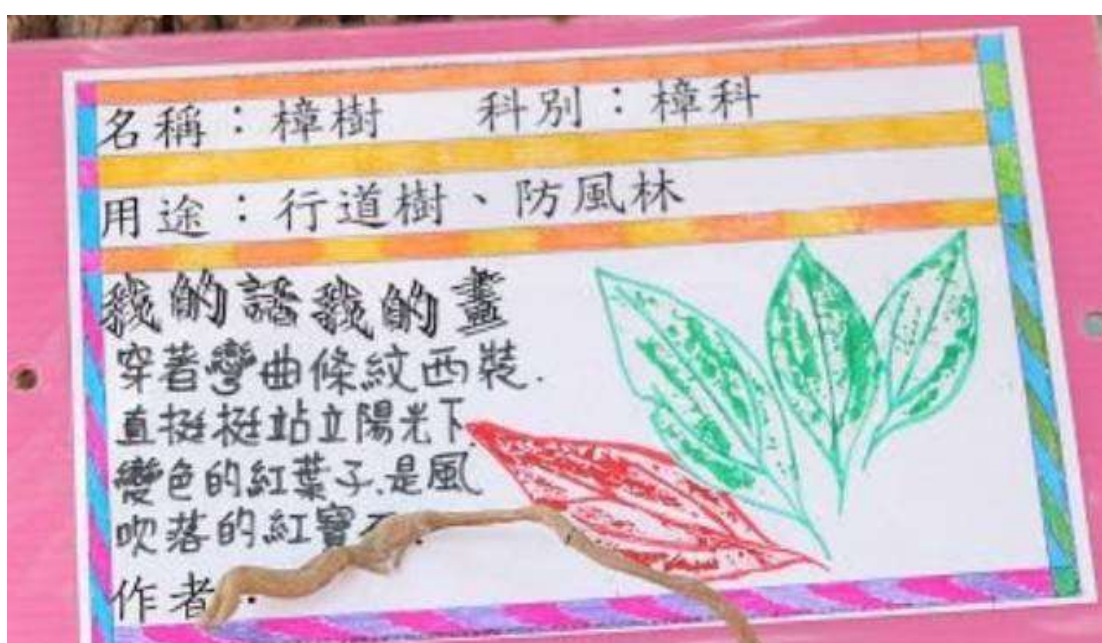 名稱：樟樹　科別：樟科
用途：行道樹、防風林
我的話我的畫
穿著彎曲條紋西裝.
直挺挺站立陽光下
變色的紅葉子.是風
吹落的紅寶
作者：